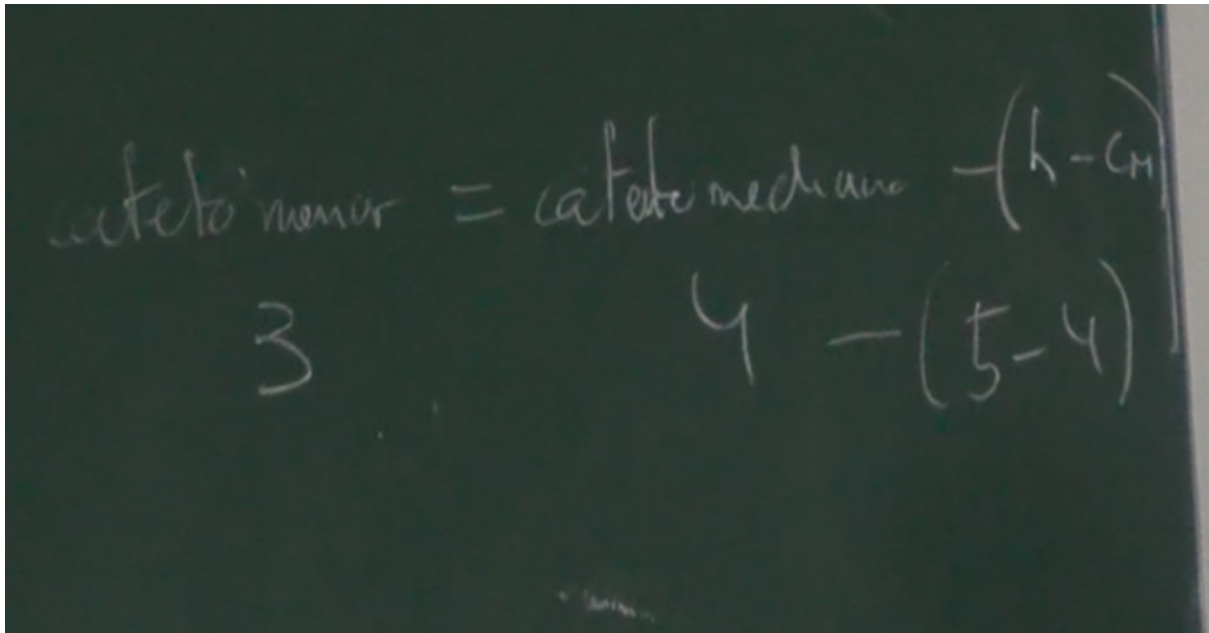 cateto menor = cateto mediano -(h-CM)
3 4 -(5-4)